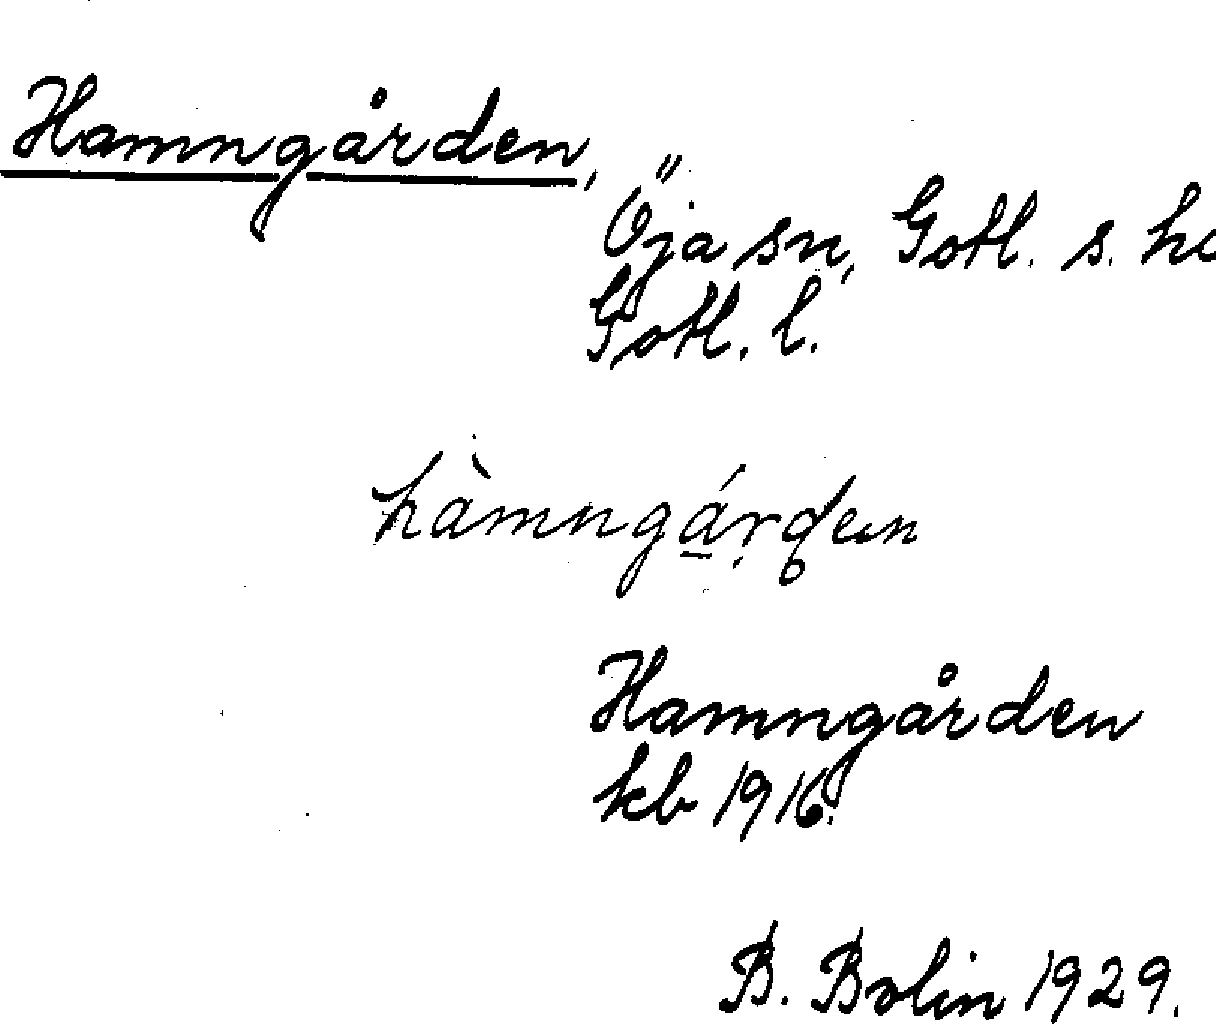 Hamngården,
Öja sn, Gotl. s. hd
Gotl. l.
hàmngá̱rden
Hamngården
kb 1916.
B. Bolin 1929.